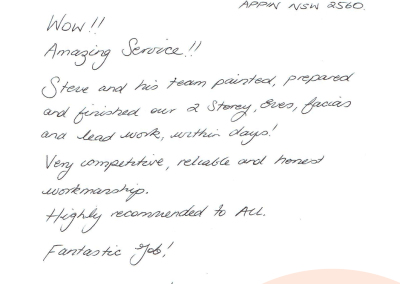 APPIN NSW 2560.
Wow!!
Amazing Service!!
Steve and his team painted, prepared
and finished our 2 Storey, Eves, facias
and lead work, within days!
Very competitive, reliable and honest
workmanship.
Highly recommended to ALL.
Fantastic Job!